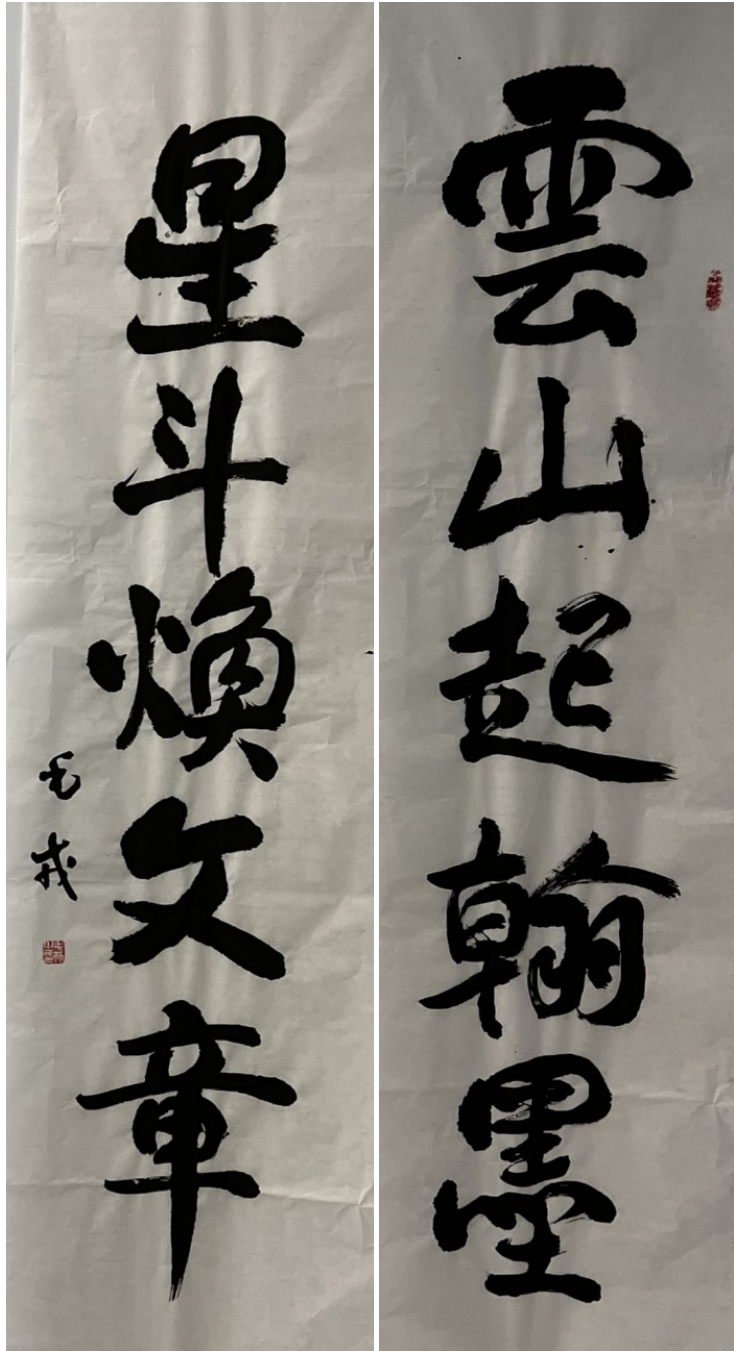 雲山起翰墨
星斗煥文章
毛戎